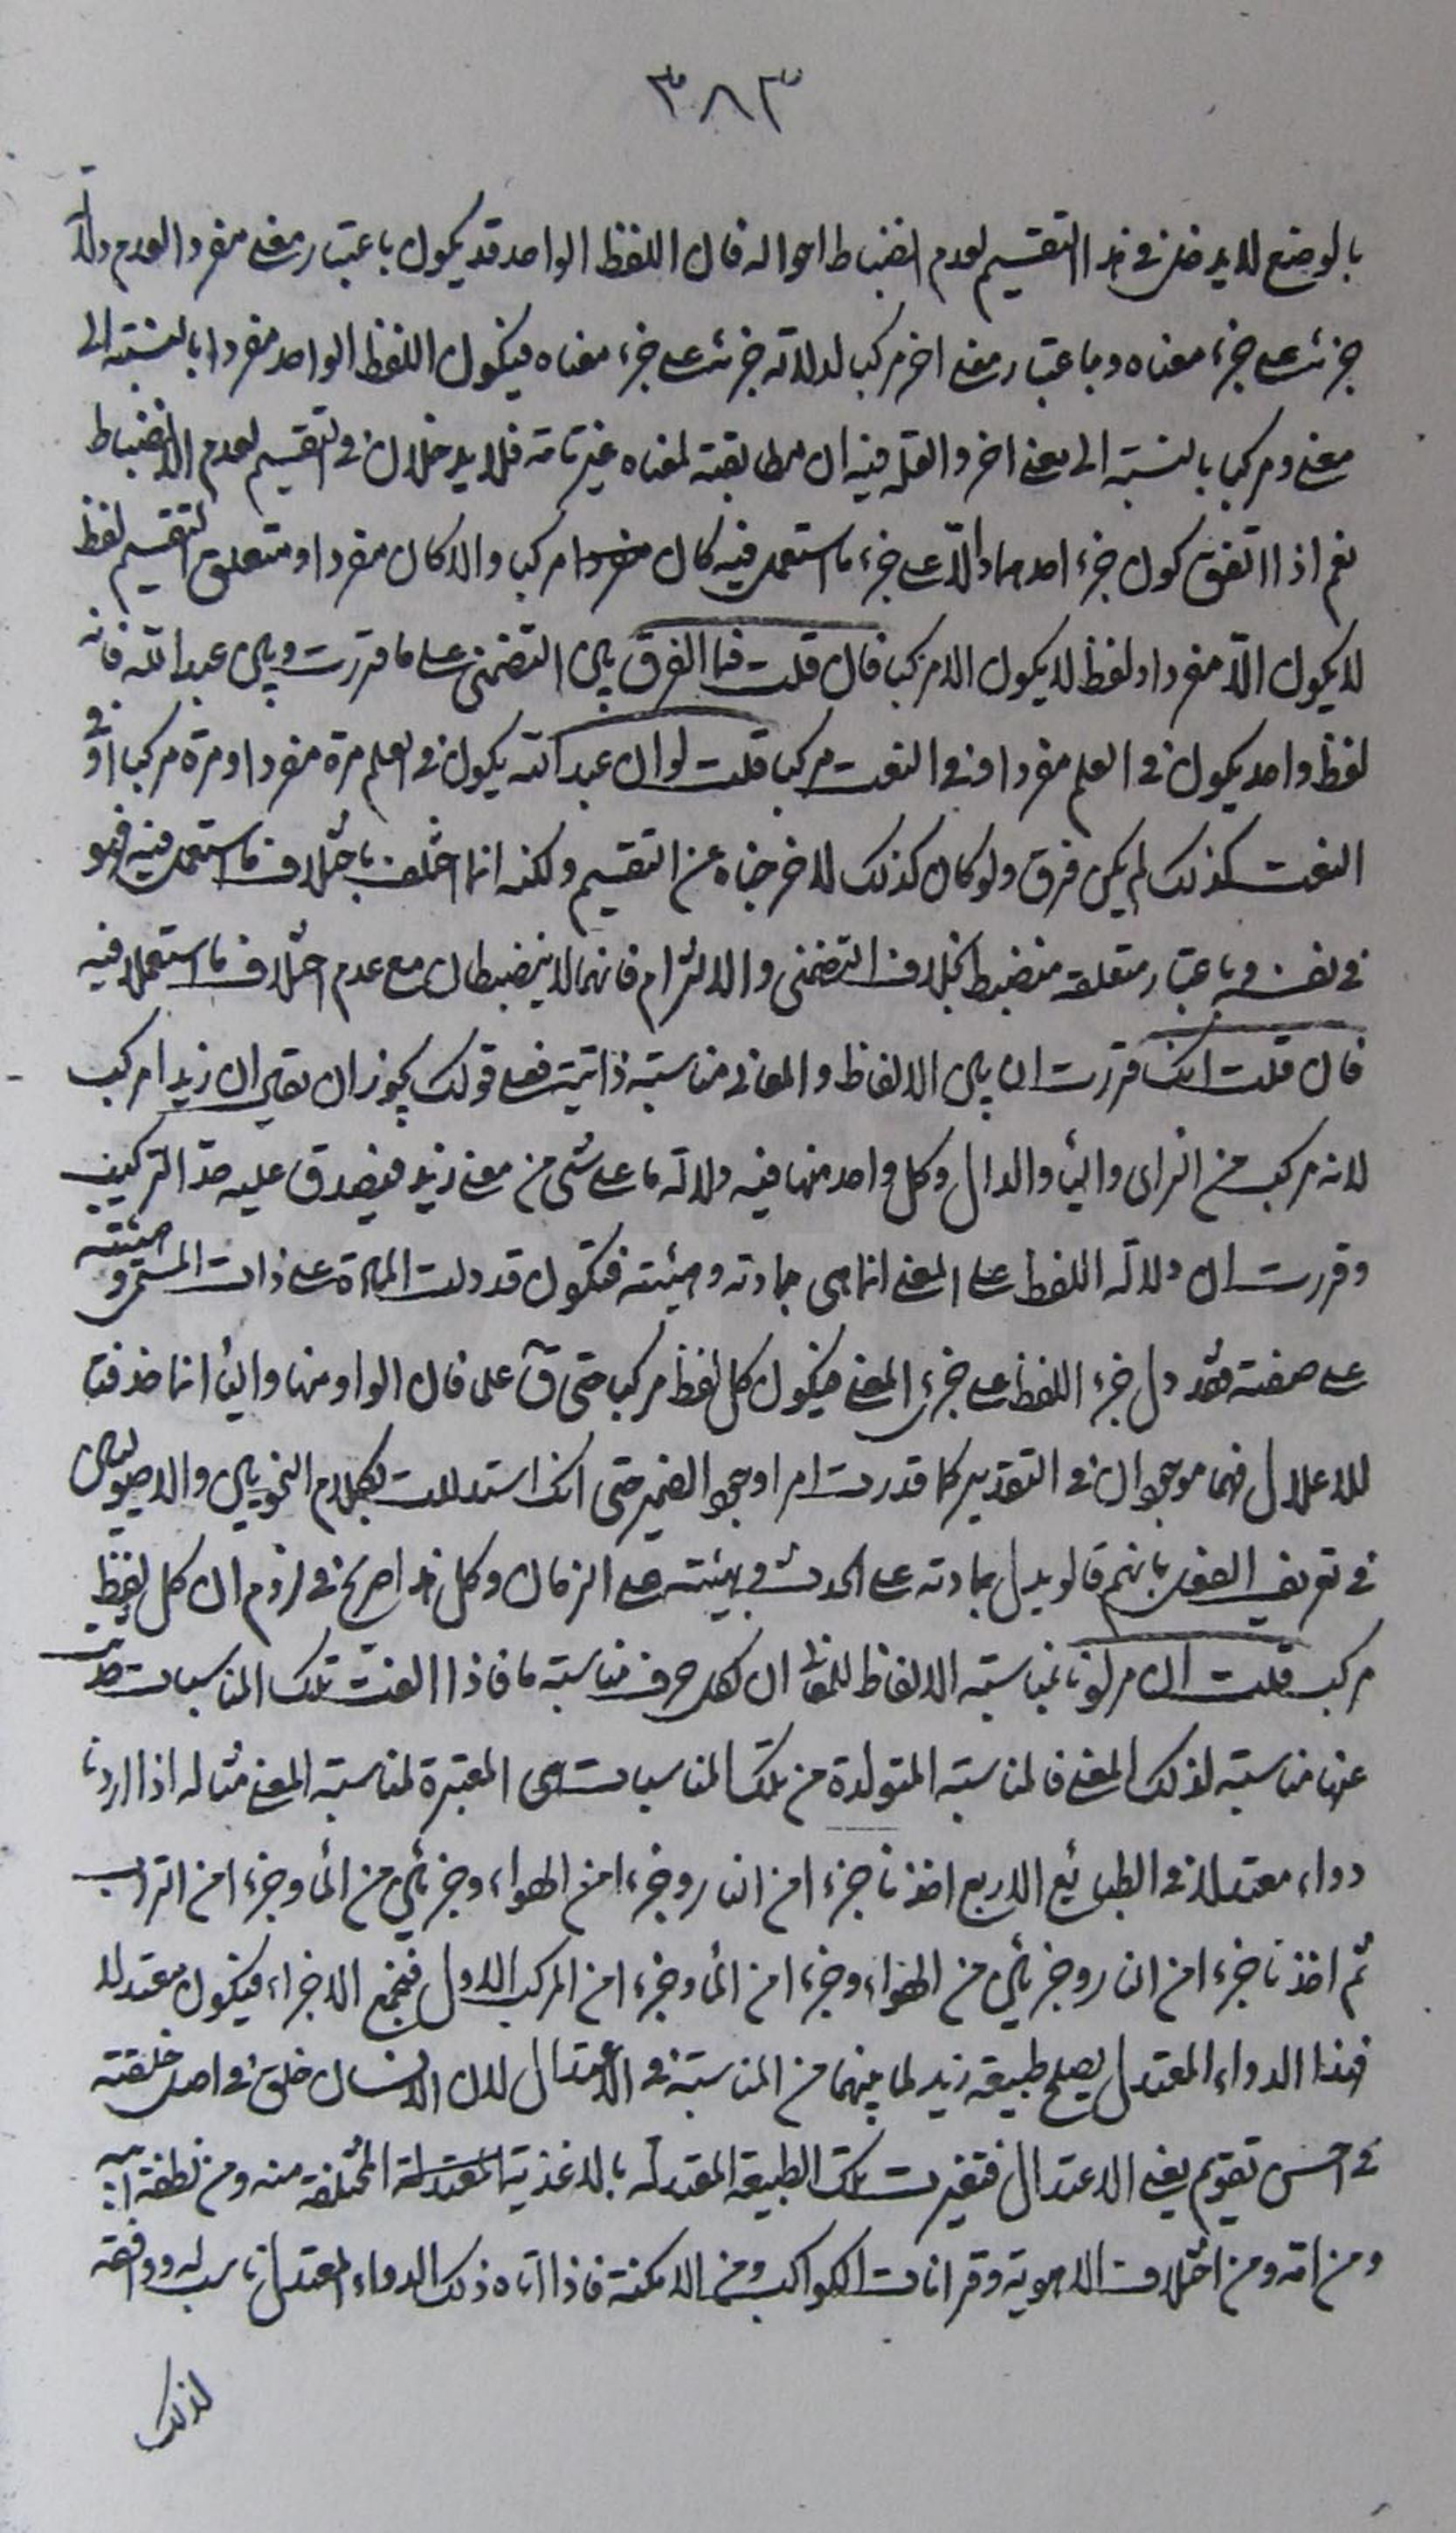 ٣٨٣
بالوضع لا يدخلن في هذا التقسيم لعدم انضباط احواله فان اللفظ الواحد قد يكون باعتبار معنى مفردا لعدم دلالة
جزئه على جزء معناه وباعتبار معنى اخر مركب لدلالة جزئه على جزء معناه فيكون اللفظ الواحد مفردا بالنسبة الى
معنى ومركبا بالنسبة الى معنى اخر والقلة فيه ان مطابقته لمعناه غير تامة فلا يدخلان في التقسيم لعدم الانضباط
نعم اذا اتفق كون جزء احدهما دالا على جزء ما استعمل فيه كان مركب والا كان مفردا ومتعلق التقسيم لفظ
لا يكون الا مفردا ولفظ لا يكون الا مركب فان قلت فما الفرق بين التضمني على ما قررت وبين عبد الله فانه
لفظ واحد يكون في العلم مفردا وفي النعت مركب قلت لو ان عبد الله يكون في العلم مرة مفردا ومرة مركبا او في
النعت كذلك لم يكن فرق ولو كان كذلك لاخرجناه عن التقسيم ولكنه انما اختلف باختلاف ما استعمل فيه فهو
في نفسه وباعتبار متعلقه منضبط بخلاف التضمني والالتزام فانهما لا ينضبطان مع عدم اختلاف ما استعملا فيه
فان قلت انك قررت ان بين الالفاظ والمعاني مناسبة ذاتية فعلى قولك يجوز ان يقال ان زيدا مركب
لانه مركب من الزاى والياء والدال وكل واحد منها فيه دلالة ما على شئ من معنى زيد فيصدق عليه حد التركيب
وقررت ان دلالة اللفظ على المعنى انما هى بمادته وهيئته فتكون قد دلت المادة على ذات المسمى وهيئته
على صفته فقد دل جزء اللفظ على جزء المعنى فيكون كل لفظ مركب حتى ق على فان الواو منها والياء انما حذفتا
للاعلال فهما موجودان في التقدير كما قدرت امرا وجود الضمير حتى انك استدللت بكلام النحويين والاصوليين
في تعريف الفعل بانهم قالو يدل بمادته على الحدث وبهيئته على الزمان وكل هذا صريح في لزوم ان كل لفظ
مركب قلت ان مرادنا بمناسبة الالفاظ للمعاني ان لكل حرف مناسبة ما فاذا الفت تلك المناسبات حدثت
عنها مناسبة لذلك المعنى فالمناسبة المتولدة من تلك المناسبات هى المعتبرة لمناسبة المعنى مثاله اذا اردنا
دواء معتدلا في الطبائع الاربع اخذنا جزءا من النار وجزءا من الهواء وجزئين من الماء وجزءا من التراب
ثم اخذنا جزءا من النار وجزئين من الهواء وجزءا من الماء وجزءا من المركب الاول فنجمع الاجزاء فيكون معتدلا
فهذا الدواء المعتدل يصلح طبيعة زيد لما بينهما من المناسبة في الاعتدال لان الانسان خلق في اصل خلقته
في احسن تقويم يعني الاعتدال فتغيرت تلك الطبيعة المعتدلة بالاغذية المختلفة منه ومن نطفة ابيه
ومن امه ومن اختلاف الاهوية وقرانات الكواكب ومن الامكنة فاذا اتاه ذلك الدواء المعتدل ناسبه ووافقه
لذلك